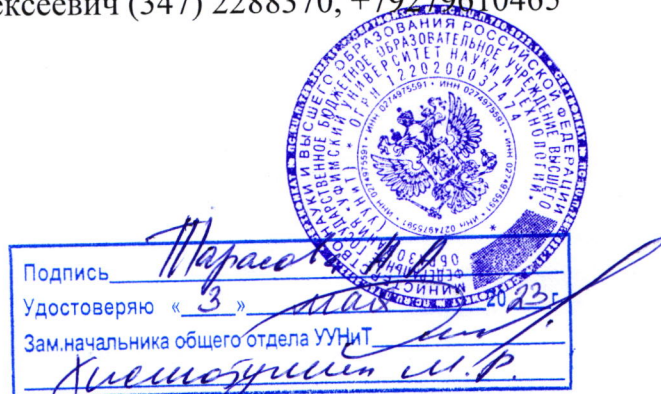 ексеевич (347) 2288370, +79279610465
МИНИСТЕРСТВО НАУКИ И ВЫСШЕГО ОБРАЗОВАНИЯ РОССИЙСКОЙ ФЕДЕРАЦИИ
ФЕДЕРАЛЬНОЕ ГОСУДАРСТВЕННОЕ БЮДЖЕТНОЕ ОБРАЗОВАТЕЛЬНОЕ УЧРЕЖДЕНИЕ ВЫСШЕГО ОБРАЗОВАНИЯ
УФИМСКИЙ УНИВЕРСИТЕТ НАУКИ И ТЕХНОЛОГИЙ
ОГРН 1220200037474
ИНН 0274975591 • ИНН 0274975591 • ИНН 0274975591
Подпись Тарасова
Удостоверяю « 3 » мая 2023 г.
Зам.начальника общего отдела УУНиТ
М.Р.